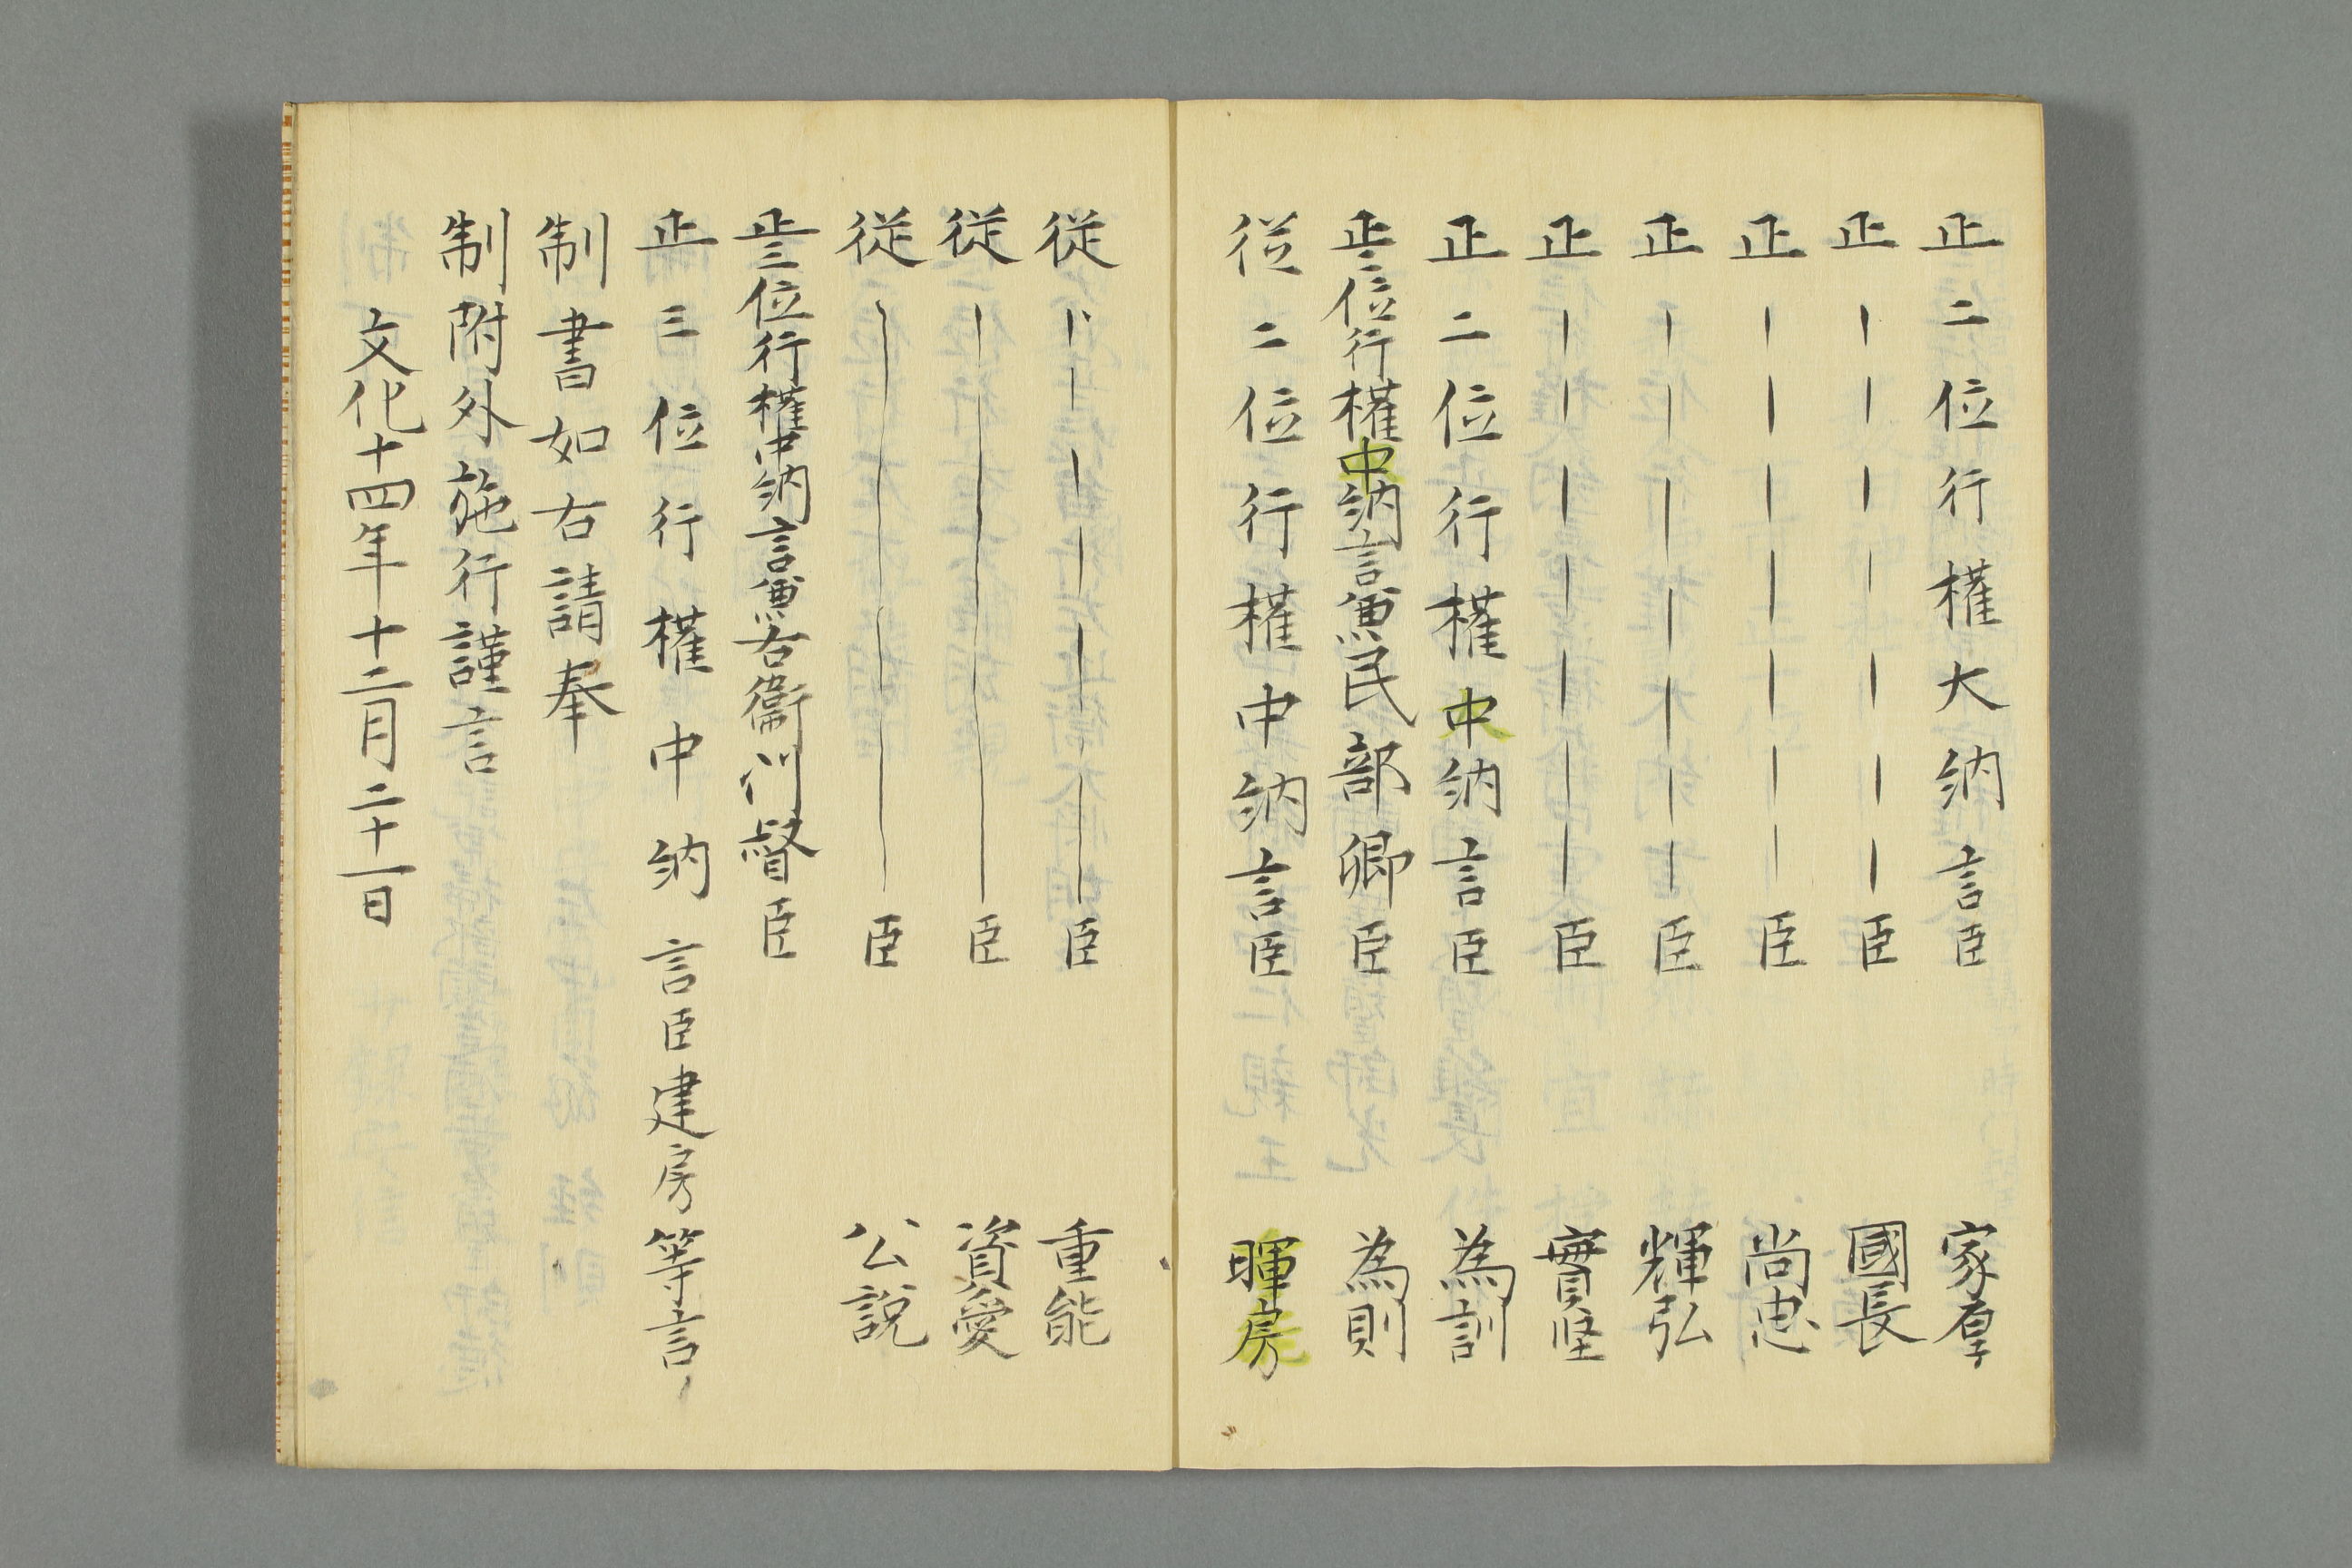 正二位行権大納言臣 家厚
正｜｜｜｜｜｜臣 國長
正｜｜｜｜｜｜｜臣 尚忠
正｜｜｜｜｜｜｜臣 輝弘
正｜｜｜｜｜｜｜臣 實堅
正二位行権中納言臣 為訓
正二位行権中納言兼民部卿臣 為則
従二位行権中納言臣 暉房
従｜｜｜｜｜｜｜臣 重能
従｜｜｜｜臣 資愛
従｜｜｜｜臣 公説
正三位行権中納言兼右衛門督臣
正三位行権中納言臣建房等言
制書如右請奉
制附外施行謹言
文化十四年十二月二十一日